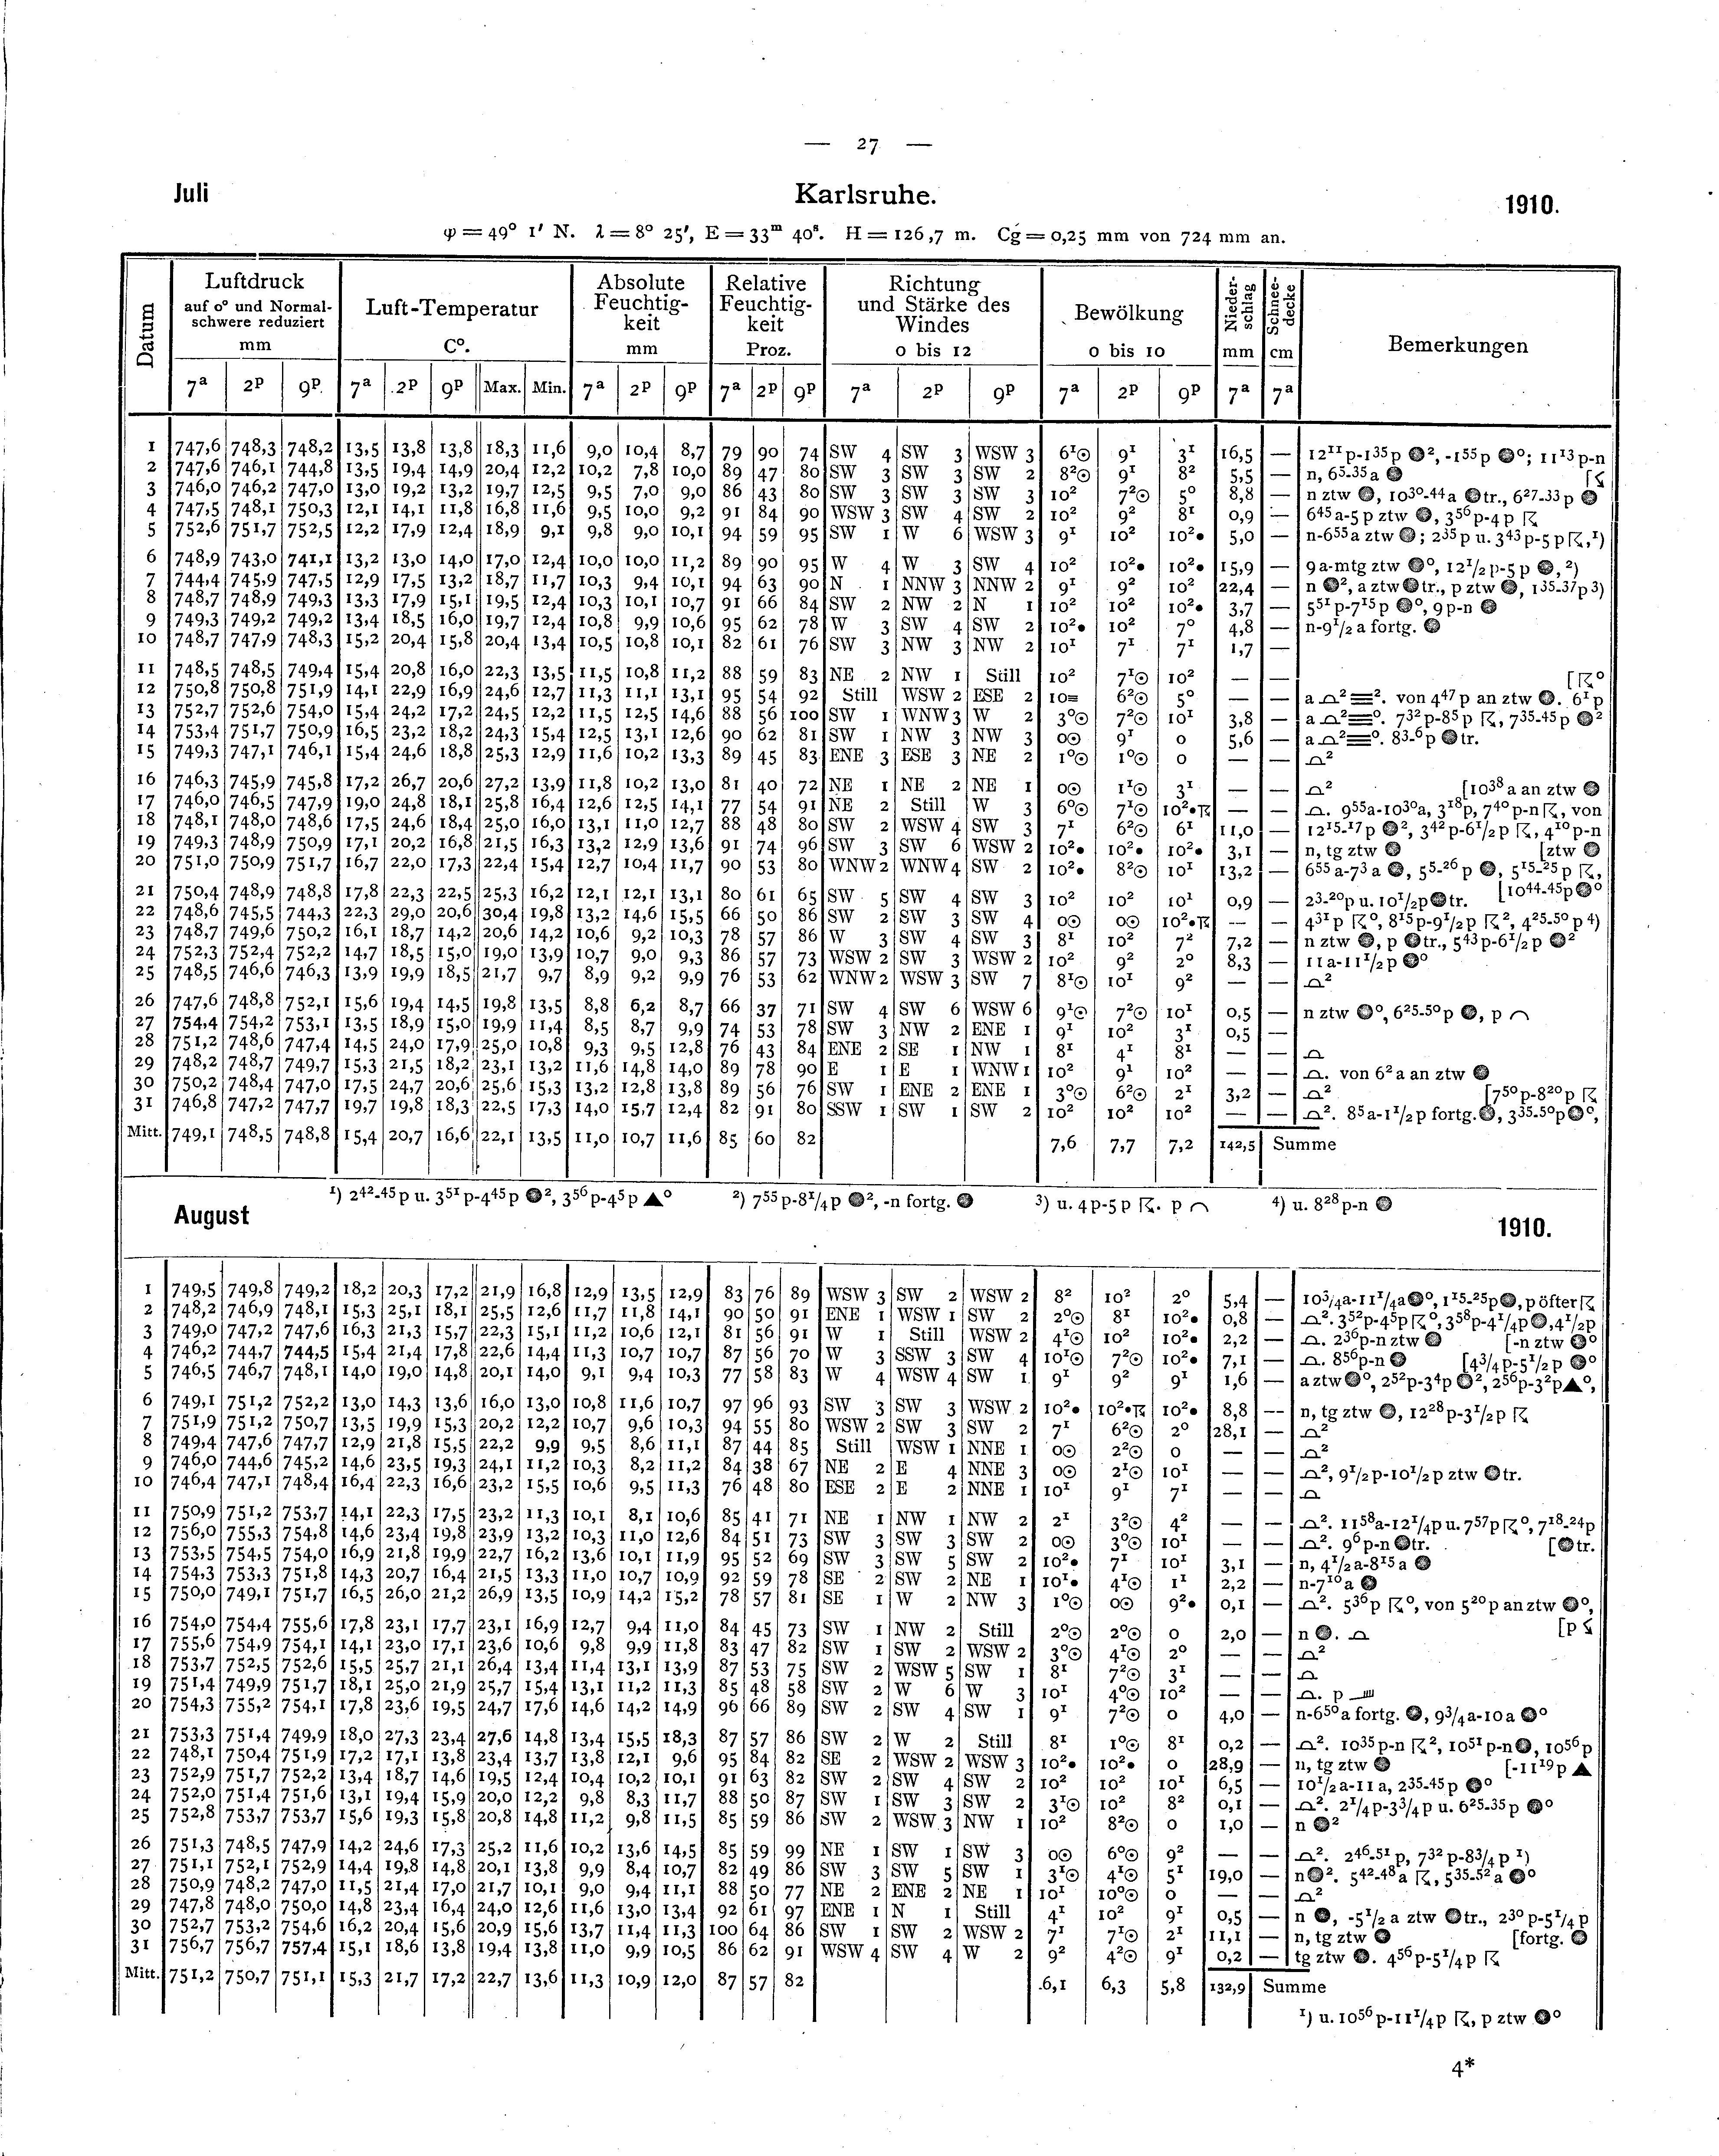 — 27 —
Juli Karlsruhe. 1910.
φ = 49° 1' N. λ = 8° 25', E = 33ᵐ 40ˢ. H = 126,7 m. Cg = 0,25 mm von 724 mm an.
Datum | Luftdruck auf 0° und Normalschwere reduziert mm | Luft-Temperatur C°. | Absolute Feuchtigkeit mm | Relative Feuchtigkeit Proz. | Richtung und Stärke des Windes 0 bis 12 | Bewölkung 0 bis 10 | Niederschlag mm | Schneedecke cm | Bemerkungen
7ᵃ 2ᵖ 9ᵖ | 7ᵃ 2ᵖ 9ᵖ Max. Min. | 7ᵃ 2ᵖ 9ᵖ | 7ᵃ 2ᵖ 9ᵖ | 7ᵃ 2ᵖ 9ᵖ | 7ᵃ 2ᵖ 9ᵖ | 7ᵃ | 7ᵃ
1 747,6 748,3 748,2 13,5 13,8 13,8 18,3 11,6 9,0 10,4 8,7 79 90 74 SW 4 SW 3 WSW 3 6¹☉ 9¹ 3¹ 16,5 — 12¹¹p-1³⁵p ●², -1⁵⁵p ●⁰; 11¹³p-n
2 747,6 746,1 744,8 13,5 19,4 14,9 20,4 12,2 10,2 7,8 10,0 89 47 80 SW 3 SW 3 SW 2 8²☉ 9¹ 8² 5,5 — n, 6⁵-³⁵a ● [☇
3 746,0 746,2 747,0 13,0 19,2 13,2 19,7 12,5 9,5 7,0 9,0 86 43 80 SW 3 SW 3 SW 3 10² 7²☉ 5⁰ 8,8 — n ztw ●, 10³⁰-⁴⁴a ●tr., 6²⁷-³³p ●
4 747,5 748,1 750,3 12,1 14,1 11,8 16,8 11,6 9,5 10,0 9,2 91 84 90 WSW 3 SW 4 SW 2 10² 9² 8¹ 0,9 — 6⁴⁵a-5p ztw ●, 3⁵⁶p-4p ☈
5 752,6 751,7 752,5 12,2 17,9 12,4 18,9 9,1 9,8 9,0 10,1 94 59 95 SW 1 W 6 WSW 3 9¹ 10² 10²• 5,0 — n-6⁵⁵a ztw ●; 2³⁵p u. 3⁴³p-5p☈,¹)
6 748,9 743,0 741,1 13,2 13,0 14,0 17,0 12,4 10,0 10,0 11,2 89 90 95 W 4 W 3 SW 4 10² 10²• 10²• 15,9 — 9a-mtg ztw ●⁰, 12¹/₂p-5p ●,²)
7 744,4 745,9 747,5 12,9 17,5 13,2 18,7 11,7 10,3 9,4 10,1 94 63 90 N 1 NNW 3 NNW 2 9¹ 9² 10² 22,4 — n ●², a ztw ●tr., p ztw ●, 1³⁵-³⁷p³)
8 748,7 748,9 749,3 13,3 17,9 15,1 19,5 12,4 10,3 10,1 10,7 91 66 84 SW 2 NW 2 N 1 10² 10² 10²• 3,7 — 5⁵¹p-7¹⁵p ●⁰, 9p-n ●
9 749,3 749,2 749,2 13,4 18,5 16,0 19,7 12,4 10,8 9,9 10,6 95 62 78 W 3 SW 4 SW 2 10²• 10² 7⁰ 4,8 — n-9¹/₂a fortg. ●
10 748,7 747,9 748,3 15,2 20,4 15,8 20,4 13,4 10,5 10,8 10,1 82 61 76 SW 3 NW 3 NW 2 10¹ 7¹ 7¹ 1,7 —
11 748,5 748,5 749,4 15,4 20,8 16,0 22,3 13,5 11,5 10,8 11,2 88 59 83 NE 2 NW 1 Still 10² 7¹☉ 10² — — [☈⁰
12 750,8 750,8 751,9 14,1 22,9 16,9 24,6 12,7 11,3 11,1 13,1 95 54 92 Still WSW 2 ESE 2 10≡ 6²☉ 5⁰ — — a ⌓²≡². von 4⁴⁷p an ztw ●. 6¹p
13 752,7 752,6 754,0 15,4 24,2 17,2 24,5 12,2 11,5 12,5 14,6 88 56 100 SW 1 WNW 3 W 2 3⁰☉ 7²☉ 10¹ 3,8 — a ⌓²≡⁰. 7³²p-8⁵p ☈, 7³⁵-⁴⁵p ●²
14 753,4 751,7 750,9 16,5 23,2 18,2 24,3 15,4 12,5 13,1 12,6 90 62 81 SW 1 NW 3 NW 3 0☉ 9¹ 0 5,6 — a ⌓²≡⁰. 8³-⁶p ●tr.
15 749,3 747,1 746,1 15,4 24,6 18,8 25,3 12,9 11,6 10,2 13,3 89 45 83 ENE 3 ESE 3 NE 2 1⁰☉ 1⁰☉ 0 — — ⌓²
16 746,3 745,9 745,8 17,2 26,7 20,6 27,2 13,9 11,8 10,2 13,0 81 40 72 NE 1 NE 2 NE 1 0☉ 1¹☉ 3¹ — — ⌓² [10³⁸a an ztw ●
17 746,0 746,5 747,9 19,0 24,8 18,1 25,8 16,4 12,6 12,5 14,1 77 54 91 NE 2 Still W 3 6⁰☉ 7¹☉ 10²•☈ — — ⌓. 9⁵⁵a-10³⁰a, 3¹⁸p, 7⁴⁰p-n☈, von
18 748,1 748,0 748,6 17,5 24,6 18,4 25,0 16,0 13,1 11,0 12,7 88 48 80 SW 2 WSW 4 SW 3 7¹ 6²☉ 6¹ 11,0 — 12¹⁵-¹⁷p ●², 3⁴²p-6¹/₂p ☈, 4¹⁰p-n
19 749,3 748,9 750,9 17,1 20,2 16,8 21,5 16,3 13,2 12,9 13,6 91 74 96 SW 3 SW 6 WSW 2 10²• 10²• 10²• 3,1 — n, tg ztw ● [ztw ●
20 751,0 750,9 751,7 16,7 22,0 17,3 22,4 15,4 12,7 10,4 11,7 90 53 80 WNW 2 WNW 4 SW 2 10²• 8²☉ 10¹ 13,2 — 6⁵⁵a-7³a ●, 5⁵-²⁶p ●, 5¹⁵-²⁵p ☈,
21 750,4 748,9 748,8 17,8 22,3 22,5 25,3 16,2 12,1 12,1 13,1 80 61 65 SW 5 SW 4 SW 3 10² 10² 10¹ 0,9 — 2³-²⁰p u. 10¹/₂p●tr. [10⁴⁴-⁴⁵p●⁰
22 748,6 745,5 744,3 22,3 29,0 20,6 30,4 19,8 13,2 14,6 15,5 66 50 86 SW 2 SW 3 SW 4 0☉ 0☉ 10²•☈ — — 4³¹p ☈⁰, 8¹⁵p-9¹/₂p ☈², 4²⁵-⁵⁰p⁴)
23 748,7 749,6 750,2 16,1 18,7 14,2 20,6 14,2 10,6 9,2 10,3 78 57 86 W 3 SW 4 SW 3 8¹ 10² 7² 7,2 — n ztw ●, p ●tr., 5⁴³p-6¹/₂p ●²
24 752,3 752,4 752,2 14,7 18,5 15,0 19,0 13,9 10,7 9,0 9,3 86 57 73 WSW 2 SW 3 WSW 2 10² 9² 2⁰ 8,3 — 11a-11¹/₂p ●⁰
25 748,5 746,6 746,3 13,9 19,9 18,5 21,7 9,7 8,9 9,2 9,9 76 53 62 WNW 2 WSW 3 SW 7 8¹☉ 10¹ 9² — — ⌓²
26 747,6 748,8 752,1 15,6 19,4 14,5 19,8 13,5 8,8 6,2 8,7 66 37 71 SW 4 SW 6 WSW 6 9¹☉ 7²☉ 10¹ 0,5 — n ztw ●⁰, 6²⁵-⁵⁰p ●, p ⌒
27 754,4 754,2 753,1 13,5 18,9 15,0 19,9 11,4 8,5 8,7 9,9 74 53 78 SW 3 NW 2 ENE 1 9¹ 10² 3¹ 0,5 —
28 751,2 748,6 747,4 14,5 24,0 17,9 25,0 10,8 9,3 9,5 12,8 76 43 84 ENE 2 SE 1 NW 1 8¹ 4¹ 8¹ — — ⌓
29 748,2 748,7 749,7 15,3 21,5 18,2 23,1 13,2 11,6 14,8 14,0 89 78 90 E 1 E 1 WNW 1 10² 9¹ 10² — — ⌓. von 6²a an ztw ●
30 750,2 748,4 747,0 17,5 24,7 20,6 25,6 15,3 13,2 12,8 13,8 89 56 76 SW 1 ENE 2 ENE 1 3⁰☉ 6²☉ 2¹ 3,2 — ⌓² [7⁵⁰p-8²⁰p ☈
31 746,8 747,2 747,7 19,7 19,8 18,3 22,5 17,3 14,0 15,7 12,4 82 91 80 SSW 1 SW 1 SW 2 10² 10² 10² — — ⌓². 8⁵a-1¹/₂p fortg.●, 3³⁵-⁵⁰p●⁰,
Mitt. 749,1 748,5 748,8 15,4 20,7 16,6 22,1 13,5 11,0 10,7 11,6 85 60 82 7,6 7,7 7,2 142,5 Summe
¹) 2⁴²-⁴⁵p u. 3⁵¹p-4⁴⁵p ●², 3⁵⁶p-4⁵p ▲⁰ ²) 7⁵⁵p-8¹/₄p ●², -n fortg. ● ³) u. 4p-5p ☈. p ⌒ ⁴) u. 8²⁸p-n ●
August 1910.
1 749,5 749,8 749,2 18,2 20,3 17,2 21,9 16,8 12,9 13,5 12,9 83 76 89 WSW 3 SW 2 WSW 2 8² 10² 2⁰ 5,4 — 10³/₄a-11¹/₄a●⁰, 1¹⁵-²⁵p●, p öfter☈
2 748,2 746,9 748,1 15,3 25,1 18,1 25,5 12,6 11,7 11,8 14,1 90 50 91 ENE 1 WSW 1 SW 2 2⁰☉ 8¹ 10²• 0,8 — ⌓². 3⁵²p-4⁵p☈⁰, 3⁵⁸p-4¹/₄p●, 4¹/₂p
3 749,0 747,2 747,6 16,3 21,3 15,7 22,3 15,1 11,2 10,6 12,1 81 56 91 W 1 Still WSW 2 4¹☉ 10² 10²• 2,2 — ⌓. 2³⁶p-n ztw ● [-n ztw ●⁰
4 746,2 744,7 744,5 15,4 21,4 17,8 22,6 14,4 11,3 10,7 10,7 87 56 70 W 3 SSW 3 SW 4 10¹☉ 7²☉ 10²• 7,1 — ⌓. 8⁵⁶p-n ● [4³/₄p-5¹/₂p ●⁰
5 746,5 746,7 748,1 14,0 19,0 14,8 20,1 14,0 9,1 9,4 10,3 77 58 83 W 4 WSW 4 SW 1 9¹ 9² 9¹ 1,6 — a ztw ●⁰, 2⁵²p-3⁴p ●², 2⁵⁶p-3²p▲⁰,
6 749,1 751,2 752,2 13,0 14,3 13,6 16,0 13,0 10,8 11,6 10,7 97 96 93 SW 3 SW 3 WSW 2 10²• 10²•☈ 10²• 8,8 — n, tg ztw ●, 12²⁸p-3¹/₂p ☈
7 751,9 751,2 750,7 13,5 19,9 15,3 20,2 12,2 10,7 9,6 10,3 94 55 80 WSW 2 SW 3 SW 2 7¹ 6²☉ 2⁰ 28,1 — ⌓²
8 749,4 747,6 747,7 12,9 21,8 15,5 22,2 9,9 9,5 8,6 11,1 87 44 85 Still WSW 1 NNE 1 0☉ 2²☉ 0 — — ⌓²
9 746,0 744,6 745,2 14,6 23,5 19,3 24,1 11,2 10,3 8,2 11,2 84 38 67 NE 2 E 4 NNE 3 0☉ 2¹☉ 10¹ — — ⌓², 9¹/₂p-10¹/₂p ztw ●tr.
10 746,4 747,1 748,4 16,4 22,3 16,6 23,2 15,5 10,6 9,5 11,3 76 48 80 ESE 2 E 2 NNE 1 10¹ 9¹ 7¹ — — ⌓
11 750,9 751,2 753,7 14,1 22,3 17,5 23,2 11,3 10,1 8,1 10,6 85 41 71 NE 1 NW 1 NW 2 2¹ 3²☉ 4² — — ⌓². 11⁵⁸a-12¹/₄p u. 7⁵⁷p☈⁰, 7¹⁸-²⁴p
12 756,0 755,3 754,8 14,6 23,4 19,8 23,9 13,2 10,3 11,0 12,6 84 51 73 SW 3 SW 3 SW 2 0☉ 3⁰☉ 10¹ — — ⌓². 9⁶p-n ●tr. [●tr.
13 753,5 754,5 754,0 16,9 21,8 19,9 22,7 16,2 13,6 10,1 11,9 95 52 69 SW 3 SW 5 SW 2 10²• 7¹ 10¹ 3,1 — n, 4¹/₂a-8¹⁵a ●
14 754,3 753,3 751,8 14,3 20,7 16,4 21,5 13,3 11,0 10,7 10,9 92 59 78 SE 2 SW 2 NE 1 10¹• 4¹☉ 1¹ 2,2 — n-7¹⁰a ●
15 750,0 749,1 751,7 16,5 26,0 21,2 26,9 13,5 10,9 14,2 15,2 78 57 81 SE 1 W 2 NW 3 1⁰☉ 0☉ 9²• 0,1 — ⌓². 5³⁶p ☈⁰, von 5²⁰p an ztw ●⁰,
16 754,0 754,4 755,6 17,8 23,1 17,7 23,1 16,9 12,7 9,4 11,0 84 45 73 SW 1 NW 2 Still 2⁰☉ 2⁰☉ 0 2,0 — n ●. ⌓ [p ☇
17 755,6 754,9 754,1 14,1 23,0 17,1 23,6 10,6 9,8 9,9 11,8 83 47 82 SW 1 SW 2 WSW 2 3⁰☉ 4¹☉ 2⁰ — — ⌓²
18 753,7 752,5 752,6 15,5 25,7 21,1 26,4 13,4 11,4 13,1 13,9 87 53 75 SW 2 WSW 5 SW 1 8¹ 7²☉ 3¹ — — ⌓
19 751,4 749,9 751,7 18,1 25,0 21,9 25,7 15,4 13,1 11,2 11,3 85 48 58 SW 2 W 6 W 3 10¹ 4⁰☉ 10² — — ⌓. p
20 754,3 755,2 754,1 17,8 23,6 19,5 24,7 17,6 14,6 14,2 14,9 96 66 89 SW 2 SW 4 SW 1 9¹ 7²☉ 0 4,0 — n-6⁵⁰a fortg. ●, 9³/₄a-10a ●⁰
21 753,3 751,4 749,9 18,0 27,3 23,4 27,6 14,8 13,4 15,5 18,3 87 57 86 SW 2 W 2 Still 8¹ 1⁰☉ 8¹ 0,2 — ⌓². 10³⁵p-n ☈², 10⁵¹p-n●, 10⁵⁶p
22 748,1 750,4 751,9 17,2 17,1 13,8 23,4 13,7 13,8 12,1 9,6 95 84 82 SE 2 WSW 2 WSW 3 10²• 10²• 0 28,9 — n, tg ztw ● [-11¹⁹p ▲
23 752,9 751,7 752,2 13,4 18,7 14,6 19,5 12,4 10,4 10,2 10,1 91 63 82 SW 2 SW 4 SW 2 10² 10² 10¹ 6,5 — 10¹/₂a-11a, 2³⁵-⁴⁵p ●⁰
24 752,0 751,4 751,6 13,1 19,4 15,9 20,0 12,2 9,8 8,3 11,7 88 50 87 SW 1 SW 3 SW 2 3¹☉ 10² 8² 0,1 — ⌓². 2¹/₄p-3³/₄p u. 6²⁵-³⁵p ●⁰
25 752,8 753,7 753,7 15,6 19,3 15,8 20,8 14,8 11,2 9,8 11,5 85 59 86 SW 2 WSW 3 NW 1 10² 8²☉ 0 1,0 — n ●²
26 751,3 748,5 747,9 14,2 24,6 17,3 25,2 11,6 10,2 13,6 14,5 85 59 99 NE 1 SW 1 SW 3 0☉ 6⁰☉ 9² — — ⌓². 2⁴⁶-⁵¹p, 7³²p-8³/₄p ¹)
27 751,1 752,1 752,9 14,4 19,8 14,8 20,1 13,8 9,9 8,4 10,7 82 49 86 SW 3 SW 5 SW 1 3¹☉ 4¹☉ 5¹ 19,0 — n●². 5⁴²-⁴⁸a ☈, 5³⁵-⁵²a ●⁰
28 750,9 748,2 747,0 11,5 21,4 17,0 21,7 10,1 9,0 9,4 11,1 88 50 77 NE 2 ENE 2 NE 1 10¹ 10⁰☉ 0 — — ⌓²
29 747,8 748,0 750,0 14,8 23,4 16,4 24,0 12,6 11,6 13,0 13,4 92 61 97 ENE 1 N 1 Still 4¹ 10² 9¹ 0,5 — n ●, -5¹/₂a ztw ●tr., 2³⁰p-5¹/₄p
30 752,7 753,2 754,6 16,2 20,4 15,6 20,9 15,6 13,7 11,4 11,3 100 64 86 SW 1 SW 2 WSW 2 7¹ 7¹☉ 2¹ 11,1 — n, tg ztw ● [fortg. ●
31 756,7 756,7 757,4 15,1 18,6 13,8 19,4 13,8 11,0 9,9 10,5 86 62 91 WSW 4 SW 4 W 2 9² 4²☉ 9¹ 0,2 — tg ztw ●. 4⁵⁶p-5¹/₄p ☈
Mitt. 751,2 750,7 751,1 15,3 21,7 17,2 22,7 13,6 11,3 10,9 12,0 87 57 82 6,1 6,3 5,8 132,9 Summe
¹) u. 10⁵⁶p-11¹/₄p ☈, p ztw ●⁰
4*